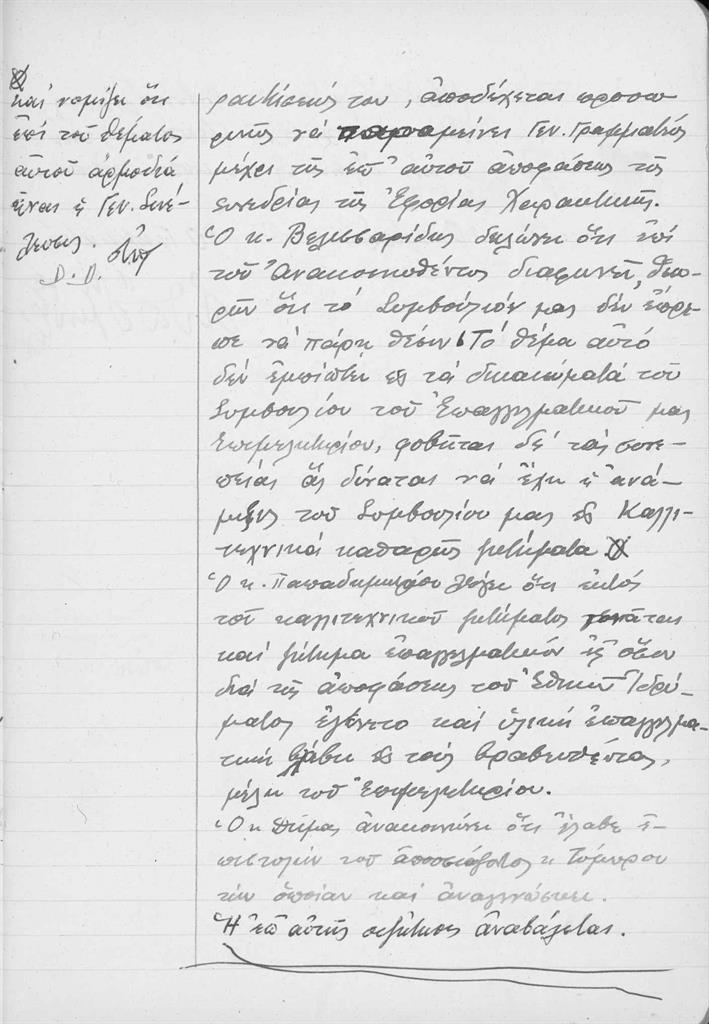 καὶ νομίζει ὅτι
ἐπὶ τοῦ θέματος
αὐτοῦ ἁρμοδία
εἶναι ἡ Γεν. Συνέ-
λευσις.
Δ.Π.
ραιτήσεώς του, ἀποδέχεται προσω-
ρινῶς νὰ παραμείνει Γεν. Γραμματεύς
μέχρι τῆς ἐπ' αὐτοῦ ἀποφάσεως τῆς
συνεδρίας τῆς Ἐφορίας Χαρακτικῆς.
Ὁ κ. Βελισσαρίδης δηλώνει ὅτι ἐπὶ
τοῦ Ἀνακοινωθέντος διαφωνεῖ, θεω-
ρῶν ὅτι τὸ Συμβούλιόν μας δὲν ἔπρε-
πε νὰ πάρη θέσιν. Τὸ θέμα αὐτὸ
δὲν ἐμπίπτει εἰς τὰ δικαιώματα τοῦ
Συμβουλίου τοῦ Ἐπαγγελματικοῦ μας
Ἐπιμελητηρίου, φοβεῖται δὲ τὰς συνε-
πείας ἃς δύναται νὰ ἔχη ἡ ἀνά-
μιξις τοῦ Συμβουλίου μας εἰς Καλλι-
τεχνικὰ καθαρῶς ζητήματα
Ὁ κ. Παπαδημητρίου λέγει ὅτι ἐκτὸς
τοῦ καλλιτεχνικοῦ ζητήματος γεννᾶται
καὶ ζήτημα ἐπαγγελματικὸν ἐξ ὅσου
διὰ τῆς ἀποφάσεως τοῦ Ἐθνικοῦ Ἱδρύ-
ματος ἐγένετο καὶ ὑλικὴ ἐπαγγελμα-
τικὴ βλάβη εἰς τοὺς βραβευθέντας,
μέλη τοῦ Ἐπιμελητηρίου.
Ὁ κ. ἀνακοινώνει ὅτι ἔλαβε ἐ-
πιστολὴν τοῦ κ. Τόμπρου
τὴν ὁποίαν καὶ ἀναγιγνώσκει.
Ἡ ἐπ' αὐτῆς συζήτησις ἀναβάλεται.